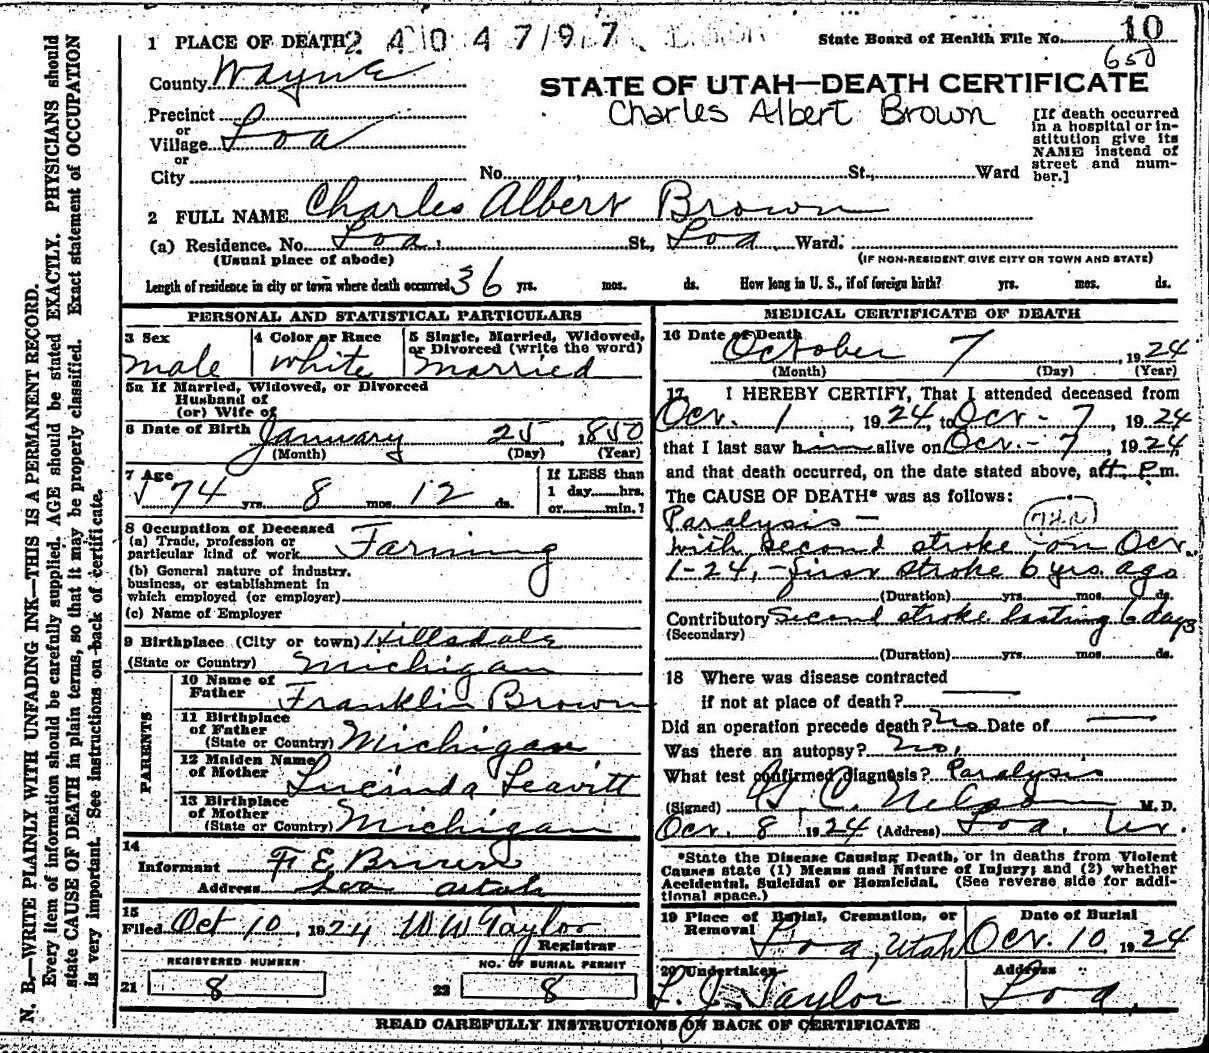 1 PLACE OF DEATH 2 4 0 4 7/9 7
State Board of Health File No. 10
650
County Wayne
STATE OF UTAH—DEATH CERTIFICATE
Charles Albert Brown
Precinct
or
Village Loa
or
City No. , St., Ward
[If death occurred
in a hospital or in-
stitution give its
NAME instead of
street and num-
ber.]
2 FULL NAME Charles Albert Brown
(a) Residence. No. Loa, St., Loa Ward.
(Usual place of abode) (IF NON-RESIDENT GIVE CITY OR TOWN AND STATE)
Length of residence in city or town where death occurred 36 yrs. mos. ds. How long in U. S., if of foreign birth? yrs. mos. ds.
PERSONAL AND STATISTICAL PARTICULARS
3 Sex
male
4 Color or Race
White
5 Single, Married, Widowed,
or Divorced (write the word)
Married
5a If Married, Widowed, or Divorced
Husband of
(or) Wife of
6 Date of Birth January 25, 1850
(Month) (Day) (Year)
7 Age
74 yrs. 8 mos. 12 ds.
If LESS than
1 day......hrs.
or......min.?
8 Occupation of Deceased
(a) Trade, profession or
particular kind of work Farming
(b) General nature of industry.
business, or establishment in
which employed (or employer)
(c) Name of Employer
9 Birthplace (City or town) Hillsdale
(State or Country) Michigan
PARENTS
10 Name of
Father Franklin Brown
11 Birthplace
of Father
(State or Country) Michigan
12 Maiden Name
of Mother Lucinda Leavitt
13 Birthplace
of Mother
(State or Country) Michigan
14
Informant F E Brown
Address Loa Utah
15
Filed Oct 10, 1924 W W Taylor
Registrar
REGISTERED NUMBER NO. OF BURIAL PERMIT
21 8 22 8
MEDICAL CERTIFICATE OF DEATH
16 Date of Death
October 7, 1924
(Month) (Day) (Year)
17 I HEREBY CERTIFY, That I attended deceased from
Oct. 1, 1924, to Oct - 7, 1924
that I last saw him alive on Oct. - 7, 1924,
and that death occurred, on the date stated above, at P.m.
The CAUSE OF DEATH* was as follows:
Paralysis —
with second stroke on Oct.
1-24, - first stroke 6 yrs. ago
(Duration) yrs. mos. ds.
Contributory Second stroke lasting 6 days
(Secondary)
(Duration) yrs. mos. ds.
18 Where was disease contracted
if not at place of death? —
Did an operation precede death? No Date of —
Was there an autopsy? No.
What test confirmed diagnosis? Paralysis
(Signed) C. Nelson M. D.
Oct. 8 1924 (Address) Loa. Ut.
*State the Disease Causing Death, or in deaths from Violent
Causes state (1) Means and Nature of Injury; and (2) whether
Accidental, Suicidal or Homicidal. (See reverse side for addi-
tional space.)
19 Place of Burial, Cremation, or
Removal
Loa, Utah
Date of Burial
Oct. 10 1924
20 Undertaker
L. J. Taylor
Address
Loa.
READ CAREFULLY INSTRUCTIONS ON BACK OF CERTIFICATE
N. B.—WRITE PLAINLY WITH UNFADING INK—THIS IS A PERMANENT RECORD.
Every item of information should be carefully supplied. AGE should be stated EXACTLY. PHYSICIANS should
state CAUSE OF DEATH in plain terms, so that it may be properly classified. Exact statement of OCCUPATION
is very important. See instructions on back of certificate.